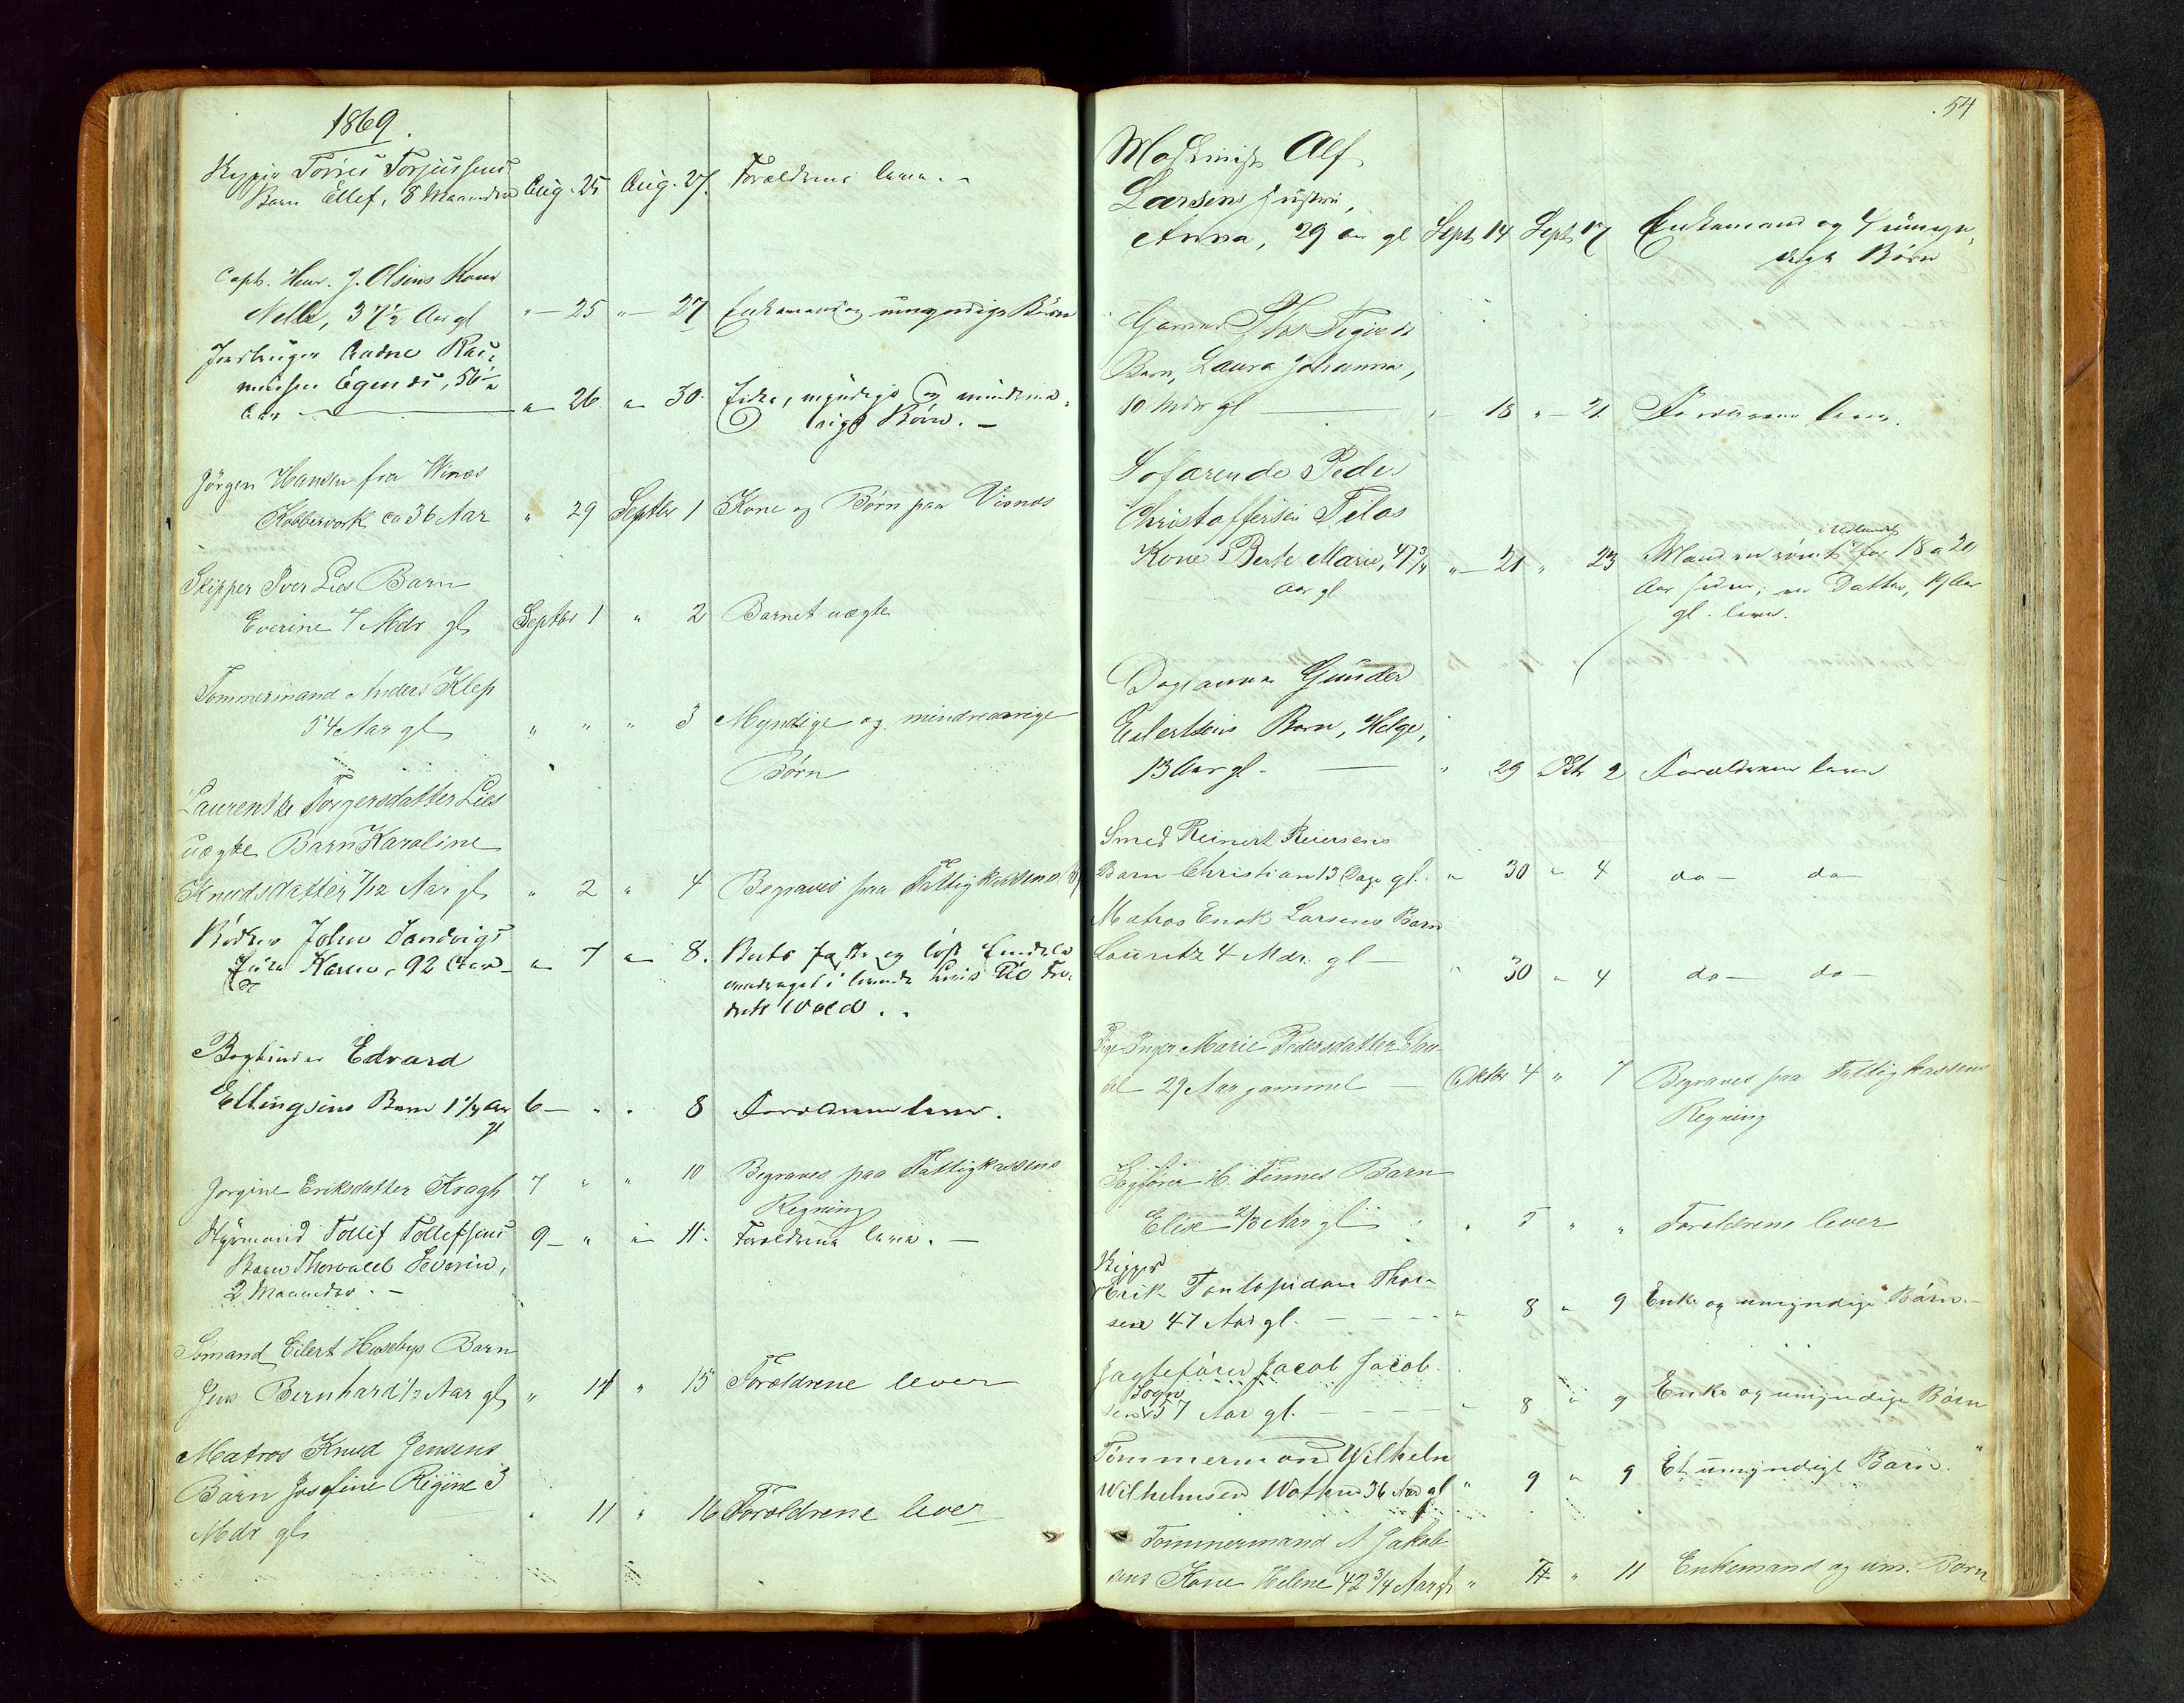 1869.
Torres Torjussens
Barn Ellef, 8 Maaneder Aug. 25 Aug. 27. Forældrene lever. -
Capt. Henr. J. Olsens Kone
Nelle, 37½ Aar gl " - 25 " - 27 Enkemand og umyndige Børn
Jordbruger Aadne Ras-
mussen Egenæs, 56½
Aar " 26 " 30. Enke, myndige og mindreaa-
rige Børn. -
Jörgen Hansen fra Winæs
Kobberværk ca 36 Aar " 29 Septbr 1 Kone og Børn paa Visnæs
Skipper Iver Lies Barn
Everine 7 Mdr gl Septbr 1 " 2 Barnet uægte
Tømmermand Anders Klep
54 Aar gl " " " 3 Myndige og mindreaarige
Børn
Laurentze Torgersdatter Lies
uægte Barn Karoline
Knudsdatter 7/12 Aar gl " 2 " 4 Begraves paa Fattigkassens
Bødker John Sandvigs
Enke Karen, 92 Aar - " 7 " 8.
Bogbinder Edvard
Ellingsens Barn 1¼ Aar 6 - " " 8 Forældrene lever.
gl
Jorgine Eriksdatter Kragh 7 " " 10 Begraves paa Fattigkassens
Regning
Styrmand Tollef Tollefsens 9 - " " 11. Forældrene lever. -
Barn Thorvald Severin,
2 Maaneder. -
Sömand Eilert Husebys Barn
Jens Bernhard ½ Aar gl " 14 " 15 Forældrene lever
Matros Knud Jensens
Barn Josefine Regine 3 " 11 " 16 Forældrene lever
Mdr gl
54
Maskinist Alf
Larsens Hustru,
Anna, 29 aar gl Sept 14 Sept 17 Enkemand og 4 umyn-
dige Børn
Garver
Barn, Laura Johanna,
10 Mdr gl " 18 " - 21 Forældrene lever.
Søfarende Peder
Christoffersen Tilas
Kone Berte Marie, 47¾ " - 21 " 23 Manden rømt i Udlandet for 18 a 20
Aar gl Aar siden; en Datter, 19 Aar
gl. lever.
Gunder
Eilertsens Barn, Helge,
13 Aar gl. " 29 Oktr 2 Forældrene lever
Smed Reinert Reiersens
Barn Christian 13 Dage gl. " 30 " 4 do - do -
Matros Enok Larsens Barn
Lauritz 4 Mdr. gl - " 30 " 4 do - do -
Pige Inger Marie Pedersdatter
29 Aar gammel - Oktbr 4 " 7 Begraves paa Fattigkassens
Regning
Sagfører H. Finnes Barn
Elise 2/3 Aar gl " 5 " " Forældrene lever
Skipper
Erik Pontopidan Thor-
sen 47 Aar gl. - - - " 8 " 9 Enke og umyndige Børn. -
Jagtefører Jacob Jacob
Sogn
sen 57 Aar gl. - - - " 8 " 9 Enke og umyndige Børn
Tømmermand Wilhelm
Wilhelmsen Wathne 36 Aar gl " 9 " 9 Et umyndigt Barn.
Tømmermand A Jakob
sens Kone Helene 42 3/4 Aar gl " 7 " 11 Enkemand og um. Børn